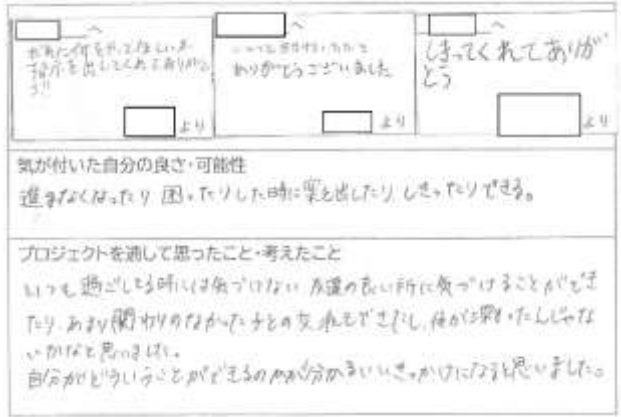 へ
だれに何をやってほしいか
指示を出してくれてありがと
う!!
より
へ
ありがとうございました
より
へ
しきってくれてありが
とう
より
気が付いた自分の良さ・可能性
進まなくなったり 困ったりした時に案を出したり しきったりできる。
プロジェクトを通して思ったこと・考えたこと
いつも過ごしてる時には気づけない 友達の良い所に気づけることができ
たり、あまり関わりのなかった子との交流もできたし、仲が深まったんじゃな
いかなと思いました。
自分がどういうことができるのかが分かるいいきっかけになると思いました。